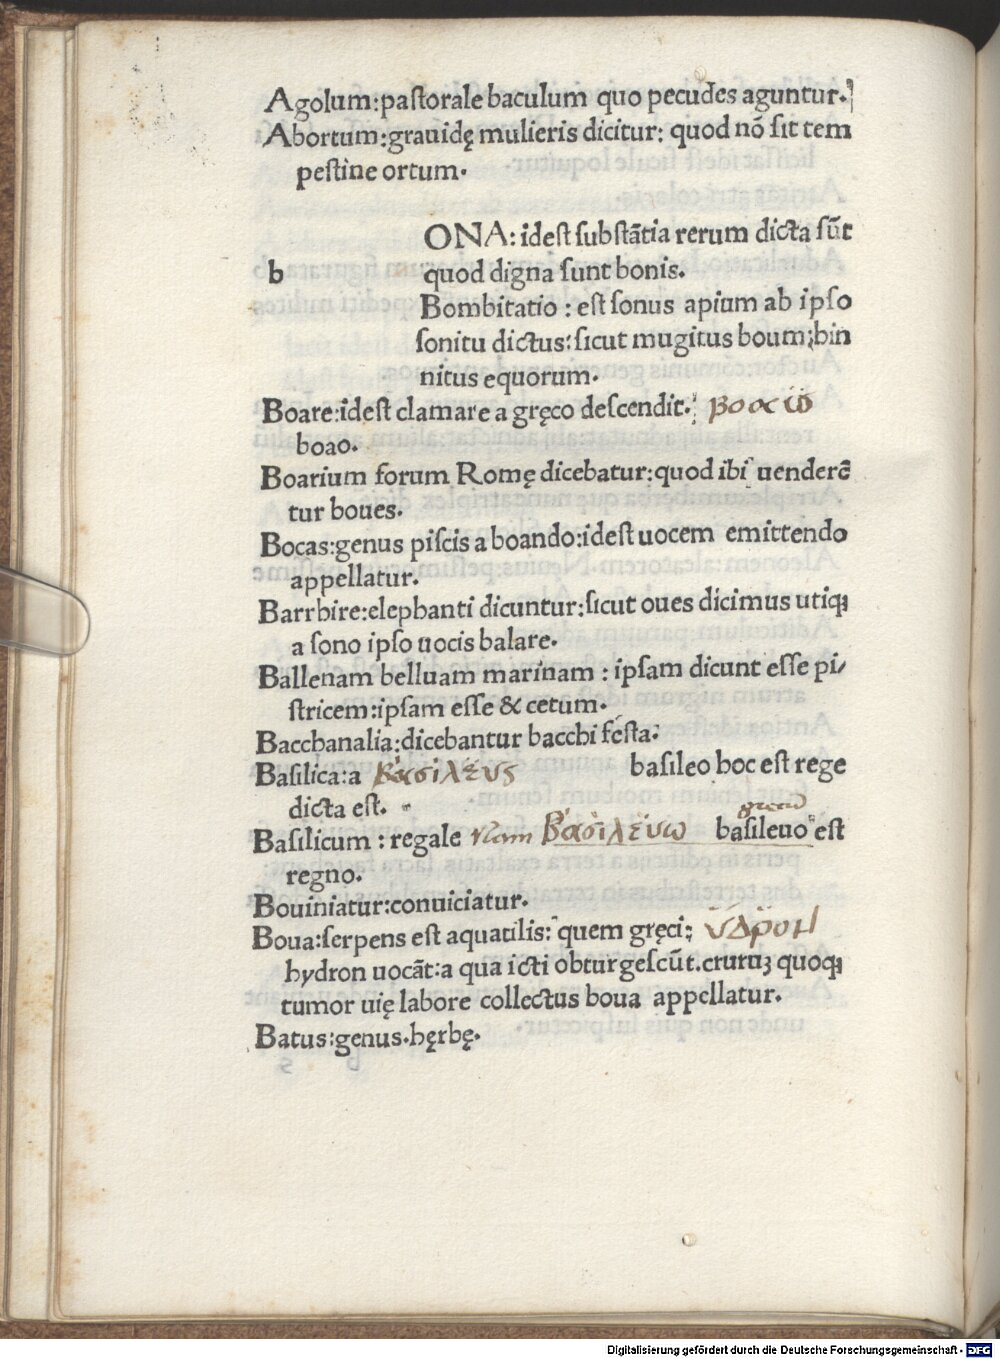 Agolum:pastorale baculum quo pecudes aguntur.
Abortum:grauidę mulieris dicitur: quod nō sit tem
pestine ortum.
ONA: idest substātia rerum dicta sūt
b quod digna sunt bonis.
Bombitatio : est sonus apium ab ipso
sonitu dictus:sicut mugitus boum;hin
nitus equorum.
Boare:idest clamare a gręco descendit. βοαω
boao.
Boarium forum Romę dicebatur:quod ibi uenderē
tur boues.
Bocas:genus piscis a boando:idest uocem emittendo
appellatur.
Barrhire:elephanti dicuntur:sicut oues dicimus utiqꝫ
a sono ipso uocis balare.
Ballenam belluam marinam : ipsam dicunt esse pi/
stricem:ipsam esse & cetum.
Bacchanalia:dicebantur bacchi festa:
Basilica:a βασιλευς basileo hoc est rege
dicta est.
grece
Basilicum : regale nam βασιλευω basileuo est
regno.
Bouiniatur:conuiciatur.
Boua:serpens est aquatilis: quem gręci: υδρον
hydron uocāt:a qua icti obturgescūt.cruruꝫ quoqꝫ
tumor uię labore collectus boua appellatur.
Batus:genus.hęrbę.
Digitalisierung gefördert durch die Deutsche Forschungsgemeinschaft - DFG